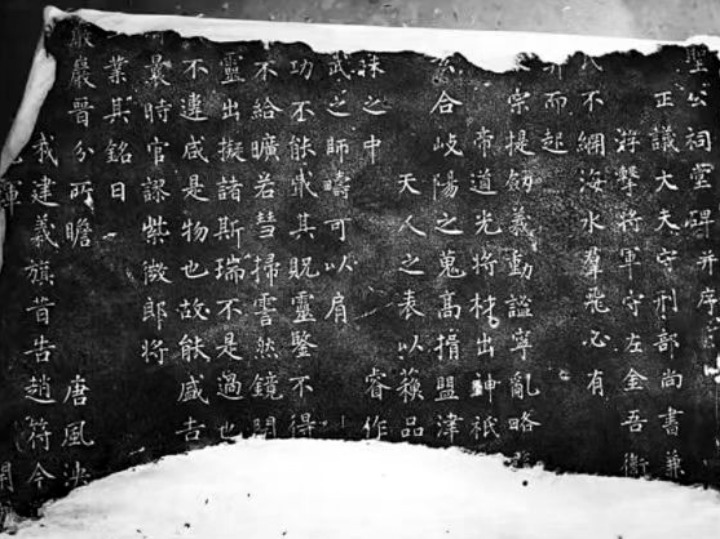 聖公祠堂碑并序
正議大夫守刑部尚書兼
游擊將軍守左金吾衛
不綱海水羣飛必有
而起
宗提劒義動謐寧亂略
帝道光將材出神祇
合岐陽之蒐高揖盟津
天人之表以蘋品
之中 睿作
武之師疇可以肩
功不能載其貺靈鑒不得
不給曠若彗掃雲然鏡開
靈出擬諸斯瑞不是過也
不違咸是物也故能咸吉
時官謬紫微郎將
業其銘曰
巖晉分所瞻 唐風泱
我建義旗昔告趙符今